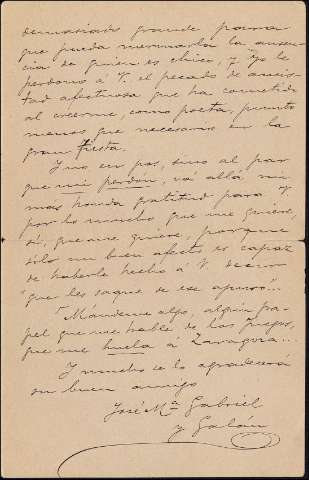 demasiado grande para
que pueda mermarla la ausen-
cia de quien es chico, y yo le
perdono á V. el pecado de amis-
tad afectuosa que ha cometido
al creerme, como poeta, punto
menos que necesario en la
gran fiesta.
Y no en pos, sino al par
que mi perdón, va allá mi
mas honda gratitud para V.
por lo mucho que me quiere,
sí, que me quiere, porque
sólo un buen afecto es capaz
de haberle hecho á V. decir
"que les saque de ese apuro"...
Mándeme algo, algún pa-
pel que me hable de los Juegos,
que me huela á Zaragoza...
Y mucho se lo agradecerá
su buen amigo
José Mª Gabriel
y Galan